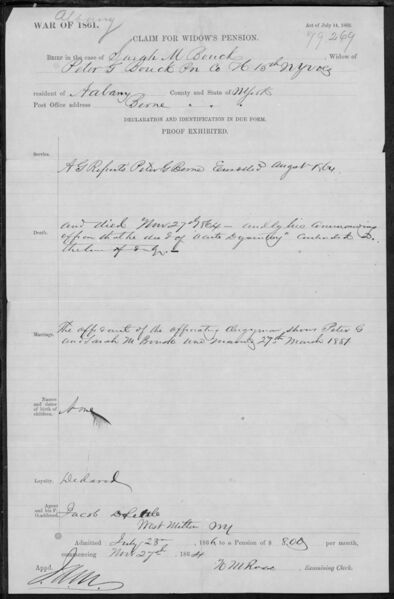 Albany
WAR OF 1861.
Act of July 14, 1862.
CLAIM FOR WIDOW'S PENSION.
79269
Brief in the case of Sarah M Bouck, Widow of
Peter G Bouck Pri Co H 18th NY Vols
resident of Albany County and State of New York
Post Office address Berne " "
DECLARATION AND IDENTIFICATION IN DUE FORM.
PROOF EXHIBITED.
Service.
A G Reports Peter G Enrolled August 1864
Death.
and died Nov 27th 1864 - and by his Commanding
officer that he died of Acute Dysentery contracted in
the line of duty
Marriage.
The affidavit of the officiating clergyman shows Peter G
and Sarah M Bouck were married 27th March 1851
Names and dates of birth of children.
None
Loyalty.
Declared
Agent and his P. O. address.
Jacob
West Milton NY
Admitted July 23d, 1866 to a Pension of $ 8.00 per month,
commencing Nov 27th, 1864
H M Rose, Examining Clerk.
Appd.